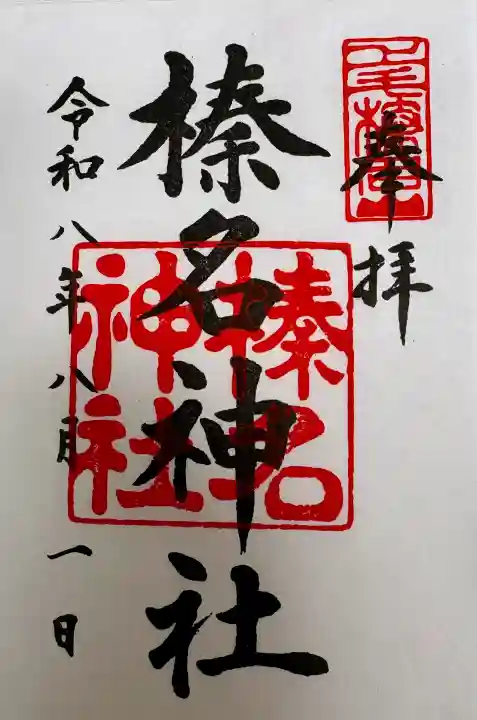 奉拝
榛名神社
令和八年八月一日
榛名
神社